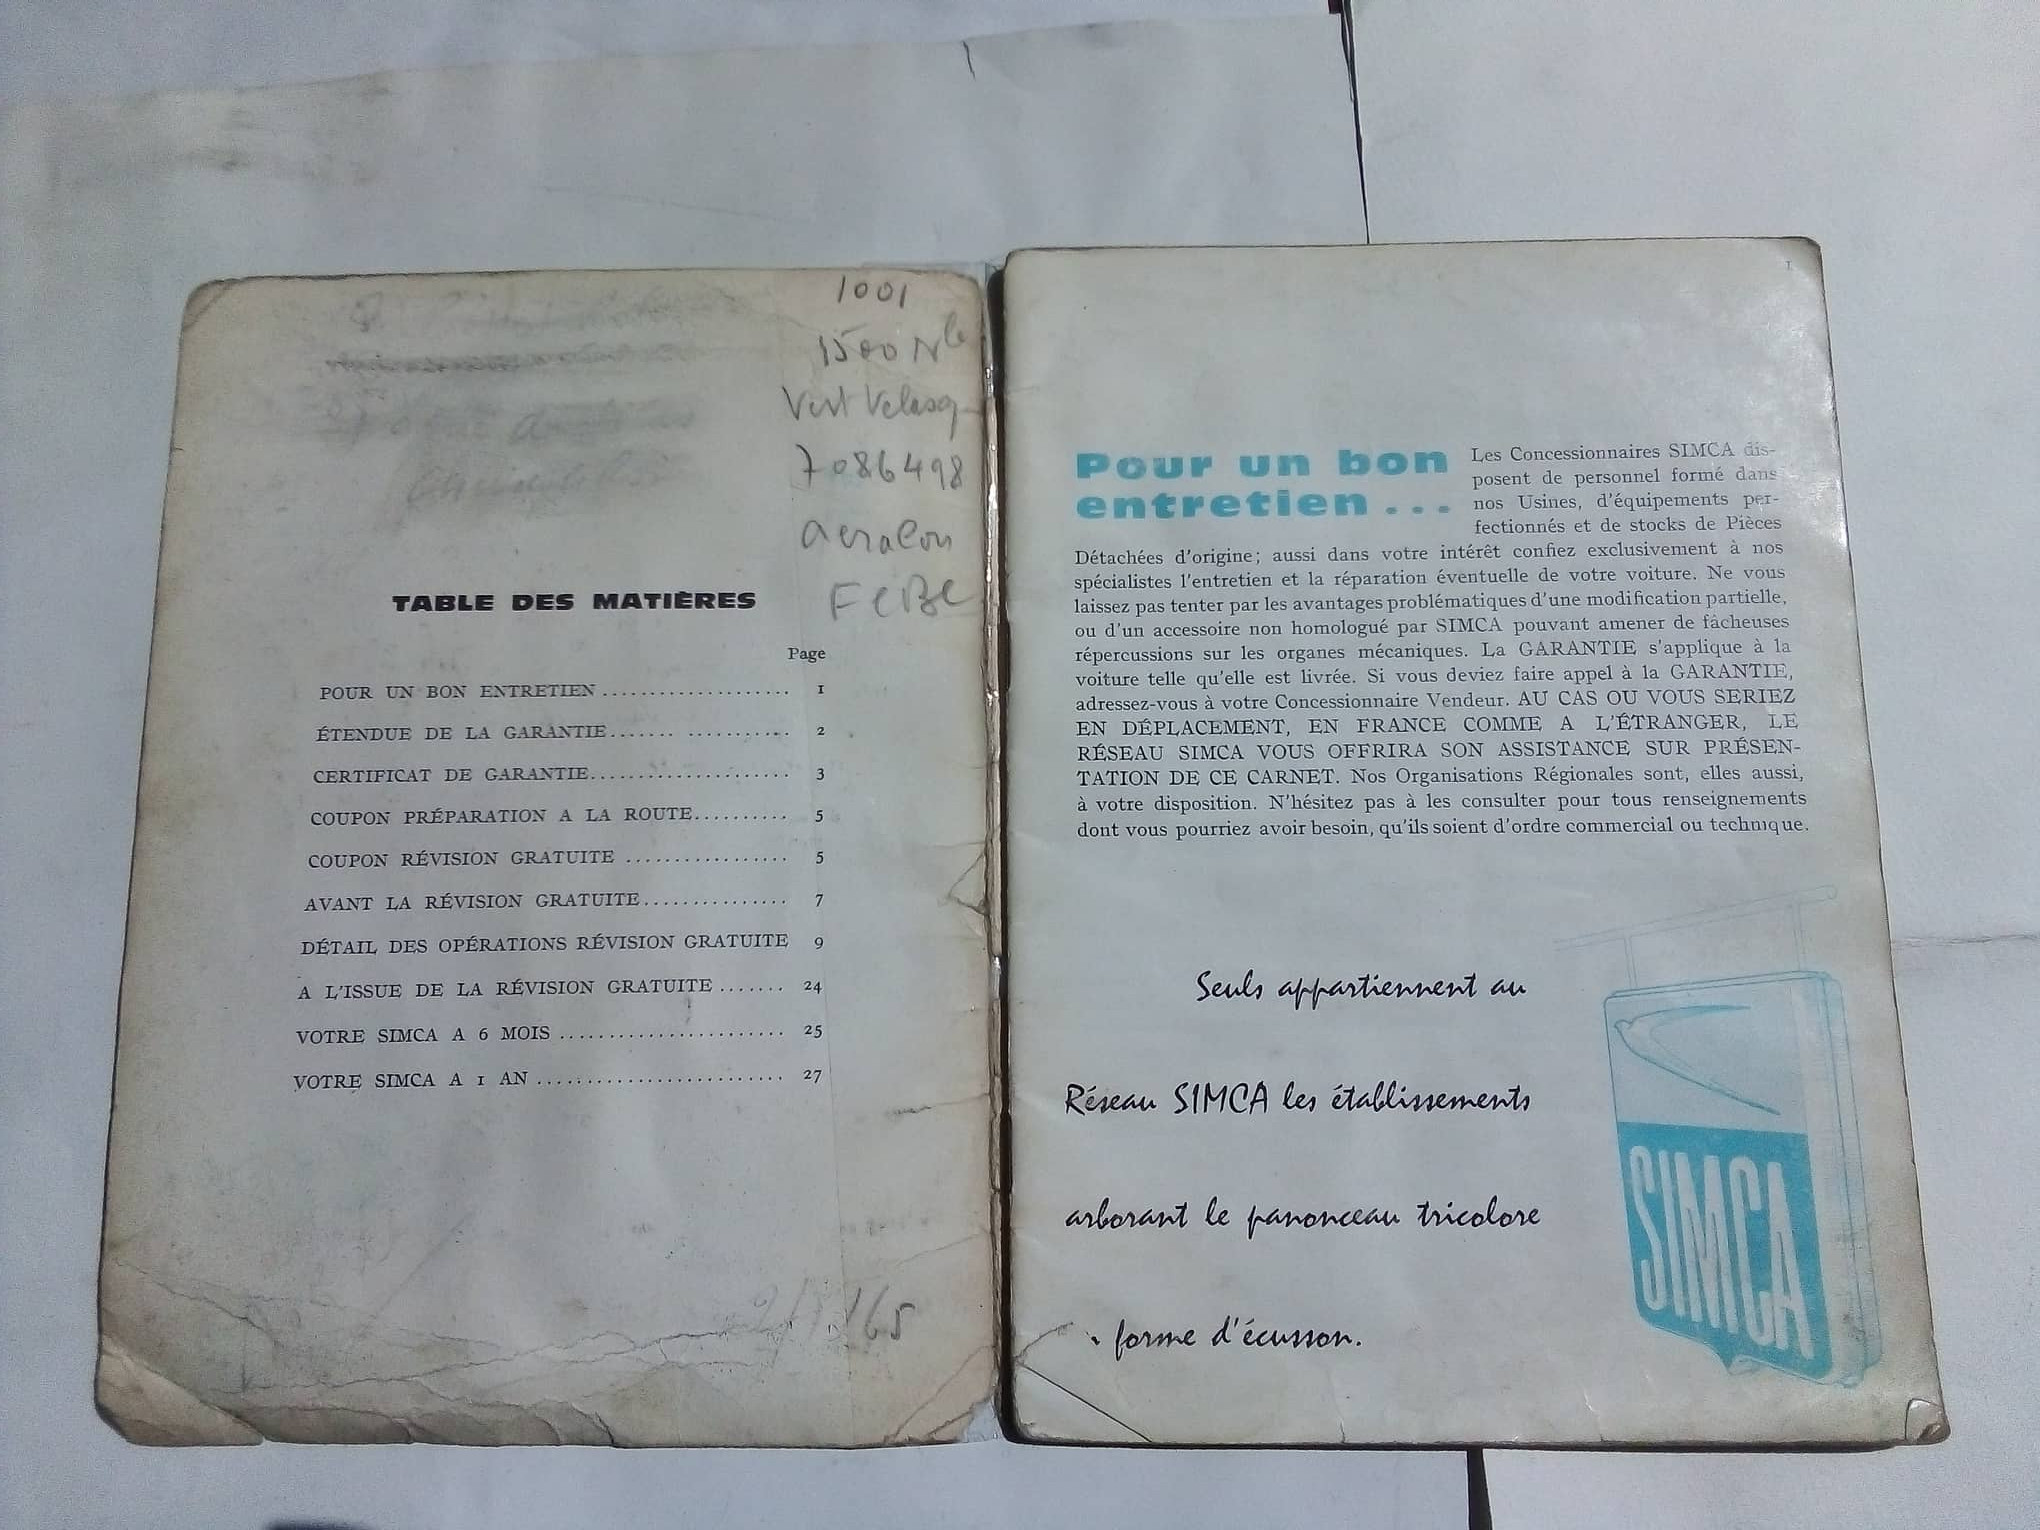 1001
1500 Nle
Vert Velasq
7086498
FEBE
TABLE DES MATIÈRES
Page
POUR UN BON ENTRETIEN .................... 1
ÉTENDUE DE LA GARANTIE....... ........... 2
CERTIFICAT DE GARANTIE..................... 3
COUPON PRÉPARATION A LA ROUTE.......... 5
COUPON RÉVISION GRATUITE ................. 5
AVANT LA RÉVISION GRATUITE............... 7
DÉTAIL DES OPÉRATIONS RÉVISION GRATUITE 9
A L'ISSUE DE LA RÉVISION GRATUITE ....... 24
VOTRE SIMCA A 6 MOIS ........................ 25
VOTRE SIMCA A 1 AN .......................... 27
165
1
Pour un bon
entretien ...
Les Concessionnaires SIMCA dis-
posent de personnel formé dans
nos Usines, d'équipements per-
fectionnés et de stocks de Pièces
Détachées d'origine; aussi dans votre intérêt confiez exclusivement à nos
spécialistes l'entretien et la réparation éventuelle de votre voiture. Ne vous
laissez pas tenter par les avantages problématiques d'une modification partielle,
ou d'un accessoire non homologué par SIMCA pouvant amener de fâcheuses
répercussions sur les organes mécaniques. La GARANTIE s'applique à la
voiture telle qu'elle est livrée. Si vous deviez faire appel à la GARANTIE,
adressez-vous à votre Concessionnaire Vendeur. AU CAS OU VOUS SERIEZ
EN DÉPLACEMENT, EN FRANCE COMME A L'ÉTRANGER, LE
RÉSEAU SIMCA VOUS OFFRIRA SON ASSISTANCE SUR PRÉSEN-
TATION DE CE CARNET. Nos Organisations Régionales sont, elles aussi,
à votre disposition. N'hésitez pas à les consulter pour tous renseignements
dont vous pourriez avoir besoin, qu'ils soient d'ordre commercial ou technique.
Seuls appartiennent au
Réseau SIMCA les établissements
arborant le panonceau tricolore
forme d'écusson.
SIMCA